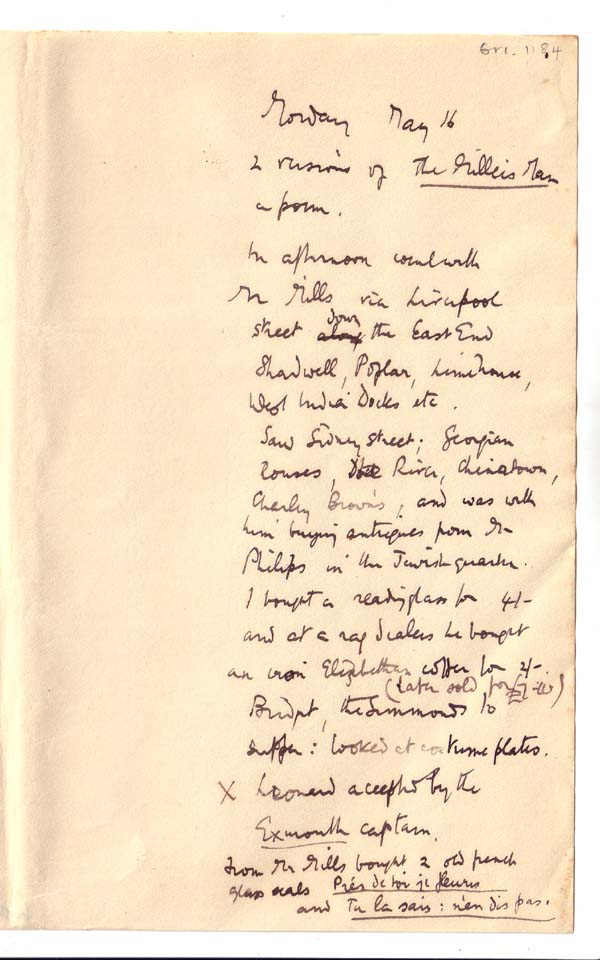 6VI. 1184
Monday May 16
2 versions of The Miller's Man
a poem.
In afternoon went with
Mr Mills via Liverpool
street along down the East End
Shadwell, Poplar, Limehouse,
West India Docks etc.
Saw Sidney Street; Georgian
houses, River, Chinatown,
Charley Brown's, and was with
him buying antiques from Mr
Philips in the Jewish quarter.
I bought a reading glass for 4/-
and at a rag dealers he bought
an iron Elizabethan coffer for 2/-.
(later sold for
Bridget, the Simmonds to
supper: looked at costume plates.
X Leonard accepted by the
Exmouth captain.
From Mr Mills bought 2 old french
glass seals Près de toi je fleuris
and Tu la sais: n'en dis pas.